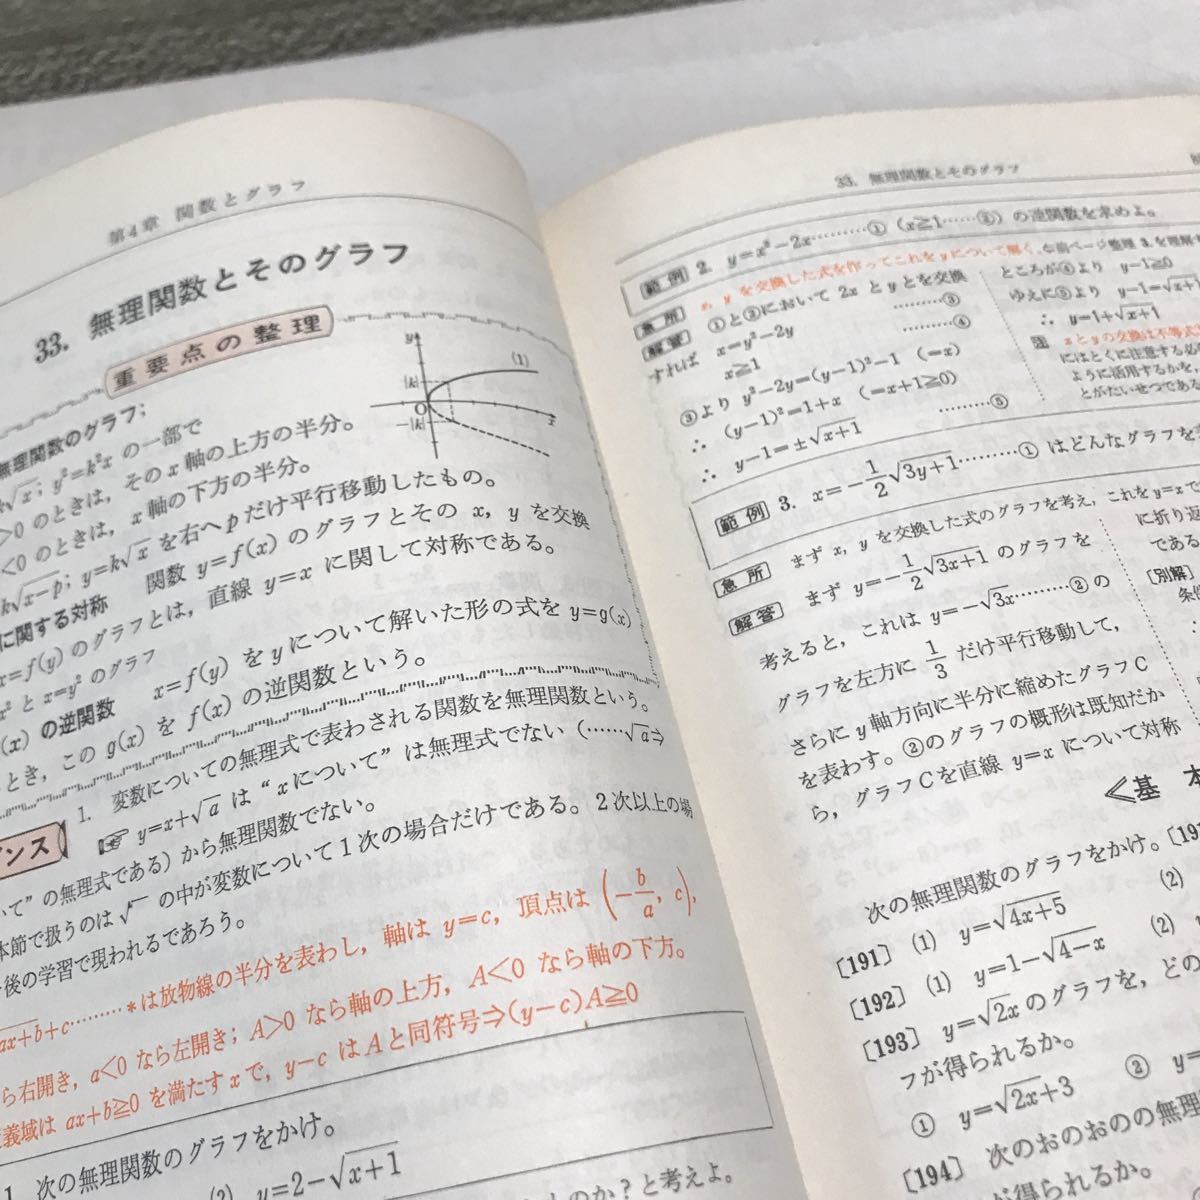 第4章 関数とグラフ
33. 無理関数とそのグラフ
重要点の整理
無理関数のグラフ;
k√x; y²=k²x の一部で
>0 のときは, その x 軸の上方の半分。
<0 のときは, x 軸の下方の半分。
k√x−p; y=k√x を右へ p だけ平行移動したもの。
に関する対称 関数 y=f(x) のグラフとその x, y を交換
x=f(y) のグラフとは, 直線 y=x に関して対称である。
x² と x=y² のグラフ
(x) の逆関数 x=f(y) を y について解いた形の式を y=g(x)
とき, この g(x) を f(x) の逆関数という。
y
(1)
|k|
O
−|k|
x
1. 変数についての無理式で表わされる関数を無理関数という。
☞ y=x+√a は “x について” は無理式でない (……√a⇒
いて” の無理式である) から無理関数でない。
本節で扱うのは √ の中が変数について1次の場合だけである。2次以上の場
後の学習で現われるであろう。
ax+b+c………* は放物線の半分を表わし, 軸は y=c, 頂点は (−b/a, c),
ら右開き, a<0 なら左開き; A>0 なら軸の上方, A<0 なら軸の下方。
義域は ax+b≧0 を満たす x で, y−c は A と同符号⇒(y−c)A≧0
1. 次の無理関数のグラフをかけ。
(2) y=2−√x+1
ものか? と考えよ。
33. 無理関数とそのグラフ
範例 2. y=x²−2x………① (x≧1……②) の逆関数を求めよ。
急所 x, y を交換した式を作ってこれを y について解く。
解答 ①と②において x と y とを交換
すれば x=y²−2y ………③
x≧1 ………④
③より y²−2y=(y−1)²−1 (=x)
∴ (y−1)²=1+x (=x+1≧0)
∴ y−1=±√x+1 ………⑤
ところが④より y−1≧0
ゆえに⑤より y−1=√x
∴ y=1+√x+1
注 x と y の交換は不等式
にはとくに注意する必
ように活用するかを,
とがたいせつであ
範例 3. x=−1/2√3y+1………① はどんなグラフを
急所 まず x, y を交換した式のグラフを考え, これを y=x で
解答 まず y=−1/2√3x+1 のグラフを
考えると, これは y=−√3x………② の
グラフを左方に 1/3 だけ平行移動して,
さらに y 軸方向に半分に縮めたグラフ C
を表わす。②のグラフの概形は既知だか
ら, グラフ C を直線 y=x について対称
に折り返
である
[別解]
条件
<基 本
次の無理関数のグラフをかけ。[19
[191] (1) y=√4x+5 (2)
[192] (1) y=1−√4−x (2)
[193] y=√2x のグラフを, どの
フが得られるか。
① y=√2x+3 ② y=
[194] 次のおのおのの無理
が得られるか。